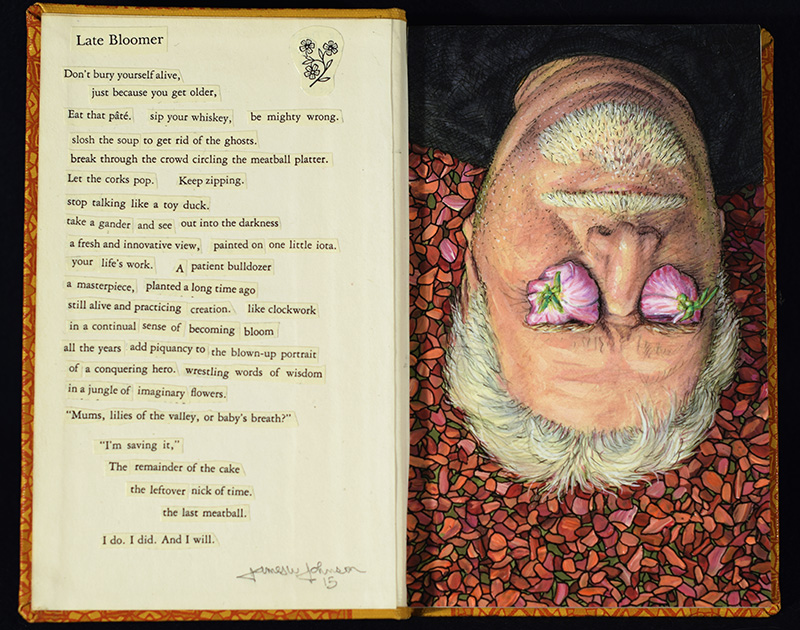 Late Bloomer
Don't bury yourself alive,
just because you get older,
Eat that pâté. sip your whiskey, be mighty wrong.
slosh the soup to get rid of the ghosts.
break through the crowd circling the meatball platter.
Let the corks pop. Keep zipping.
stop talking like a toy duck.
take a gander and see out into the darkness
a fresh and innovative view, painted on one little iota.
your life's work. A patient bulldozer
a masterpiece, planted a long time ago
still alive and practicing creation. like clockwork
in a continual sense of becoming bloom
all the years add piquancy to the blown-up portrait
of a conquering hero. wrestling words of wisdom
in a jungle of imaginary flowers.
"Mums, lilies of the valley, or baby's breath?"
"I'm saving it,"
The remainder of the cake
the leftover nick of time.
the last meatball.
I do. I did. And I will.
Johnson
15